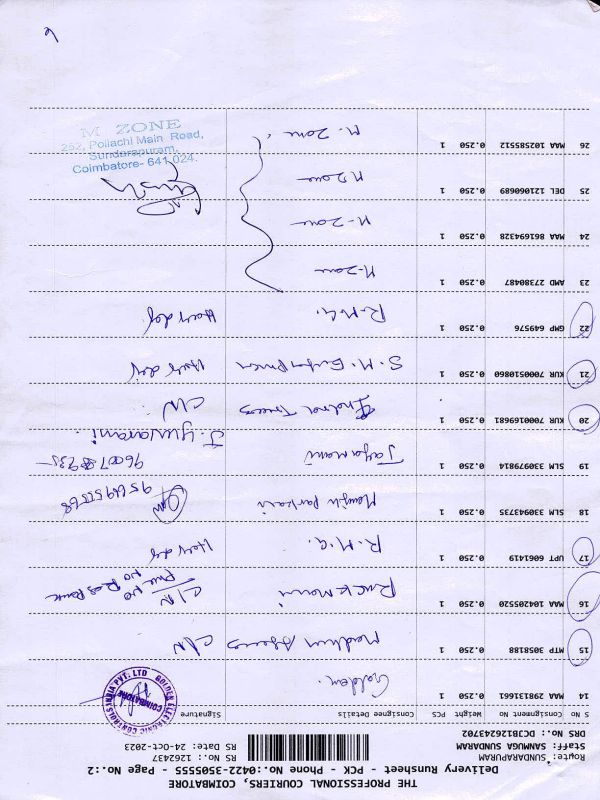 THE PROFESSIONAL COURIERS, COIMBATORE
Delivery Runsheet - PCK - Phone No:0422-3505555 - Page No.:2
Route: SUNDARAPURAM
Staff: SANMUGA SUNDARAM
DRS No.: DC1B126243702
RS No.: 1262437
RS Date: 24-Oct-2023
S No Consignment No Weight PCS Consignee Details Signature
14 MAA 298131661 0.250 1 Golden.
GOLDEN ELECTRONIC CONTROLS INDIA PVT. LTD
COIMBATORE
15 MTP 3058188 0.250 1 C/N
16 MAA 104205520 0.250 1 Ruckmani C/N
17 UPT 6061419 0.250 1 R.M.G. Hav dej
18 SLM 330943735 0.250 1 9566955568
19 SLM 330979814 0.250 1 Jayamani
J. Yuvarani.
20 KUR 700169681 0.250 1 C/N
21 KUR 700510860 0.250 1 S.M. Enterprises
22 GMP 649576 0.250 1 R.M.G.
23 AMD 27380487 0.250 1 M-Zone
24 MAA 861694328 0.250 1 M-Zone
25 DEL 121060689 0.250 1 M Zone
26 MAA 102585512 0.250 1 M. Zone
M ZONE
252, Pollachi Main Road,
Sundarapuram,
Coimbatore- 641 024.